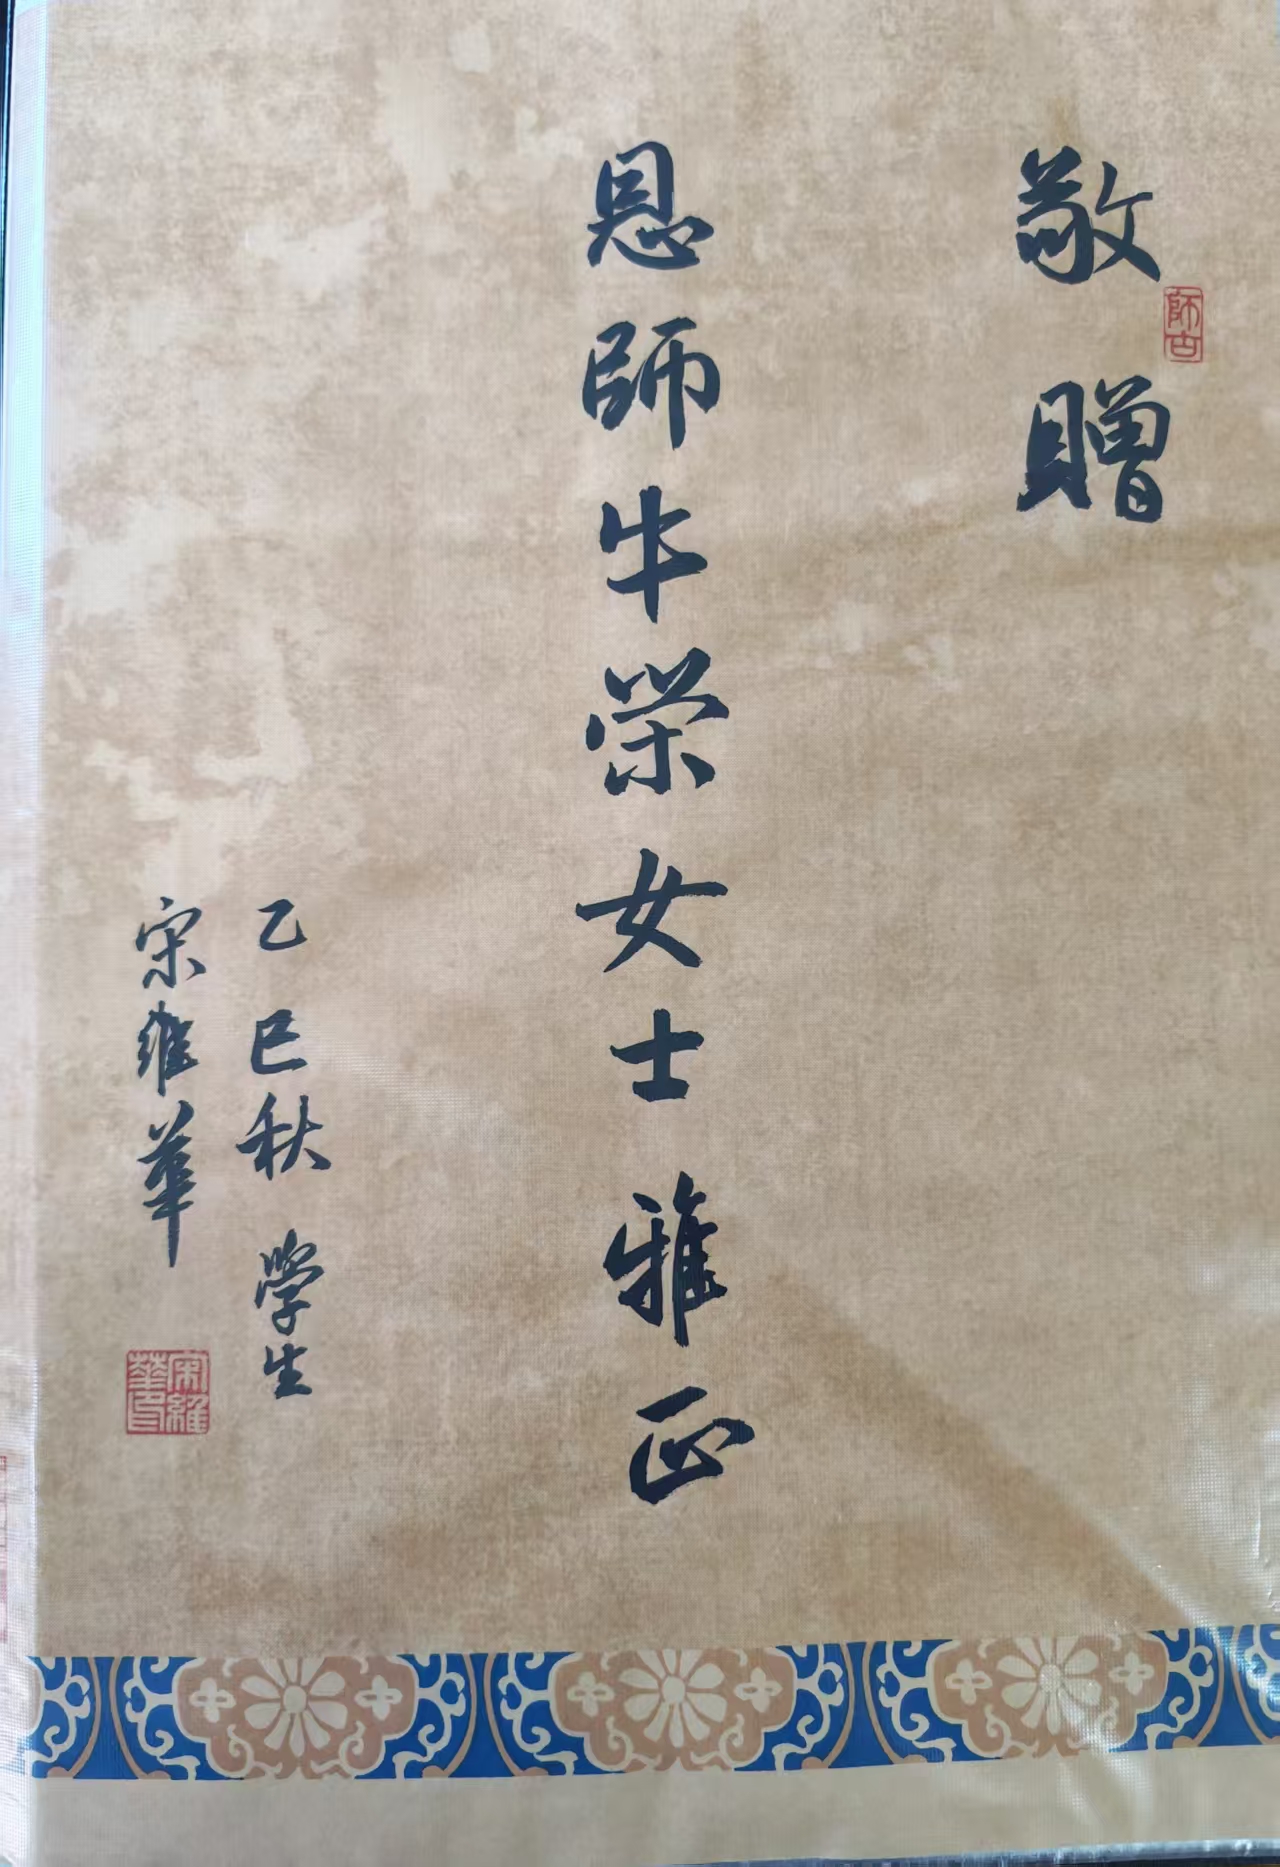 敬贈
師古
恩師牛榮女士雅正
乙巳秋 學生
宋維華
宋維華印